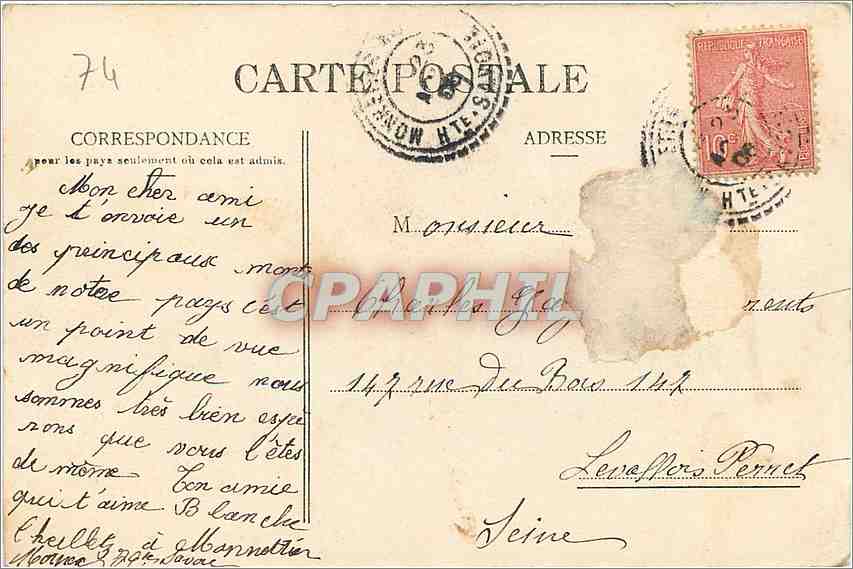 74
CARTE POSTALE
CORRESPONDANCE
pour les pays seulement où cela est admis.
ADRESSE
RÉPUBLIQUE FRANÇAISE
10c
Mon cher ami
je t'envoie un
des principaux monts
de notre pays c'est
un point de vue
magnifique nous
sommes très bien espé
rons que vous l'êtes
de même Ton amie
qui t'aime Blanche
à Monnetier
Savoie
Monsieur
Charles
147 rue du Bois 147
Levallois Perret
Seine
CPAPHIL